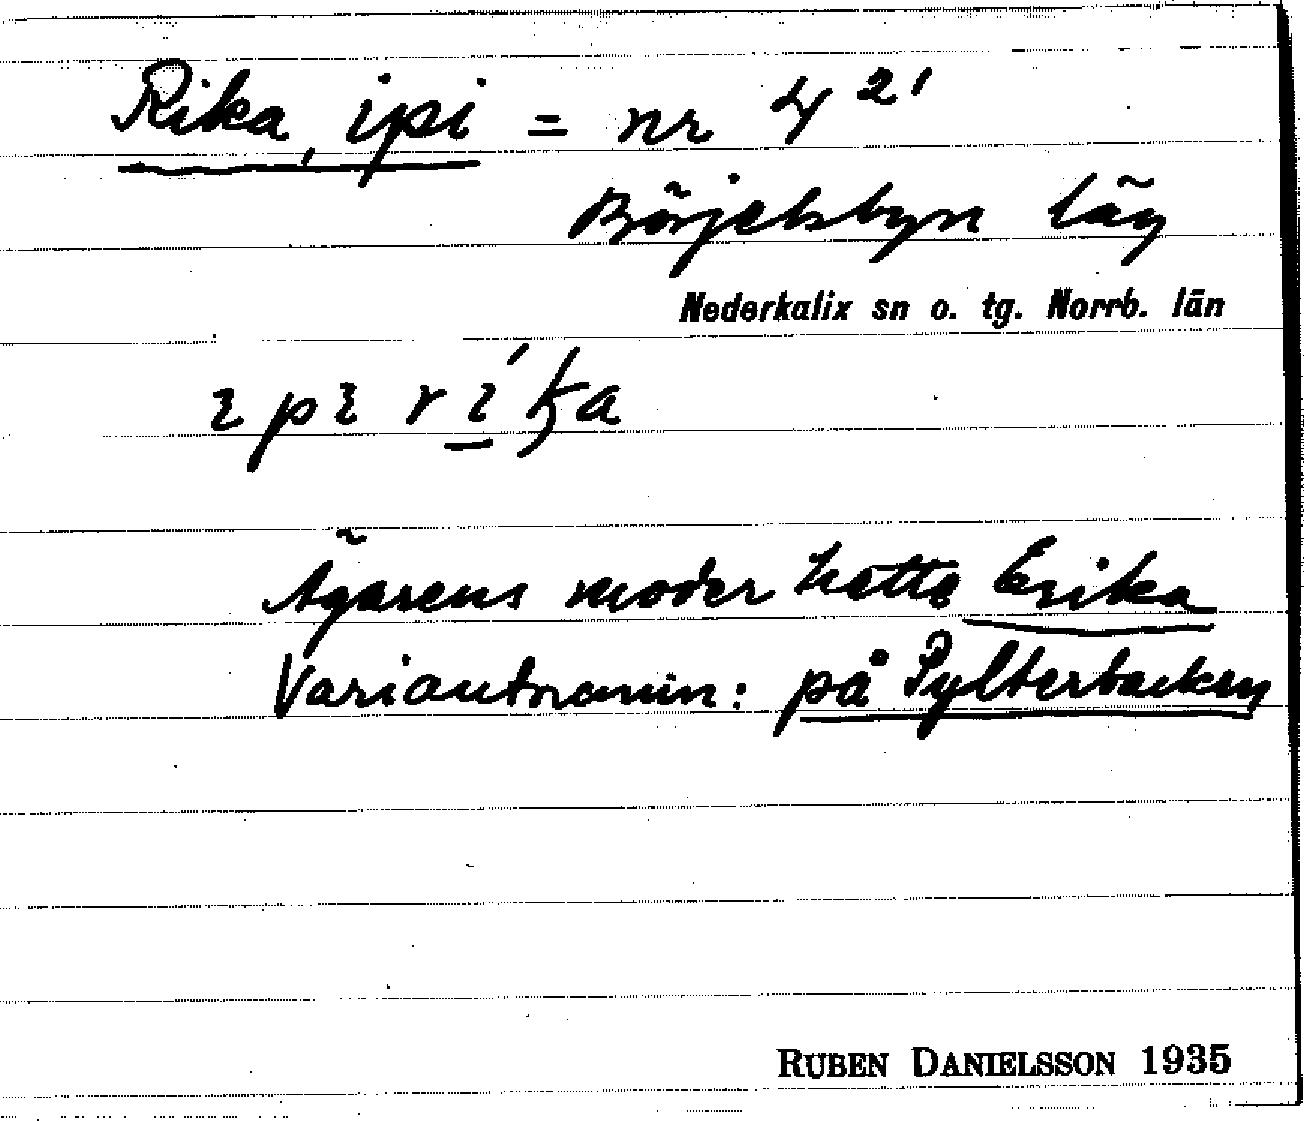 Rika, ipi = nr 4²¹
Börjelsbyn läg
Nederkalix sn o. tg. Norrb. län
ɩpɩ rɩ̲́ka
Ägarens moder hette Erika
Variantnamn: på Pylterbacken
RUBEN DANIELSSON 1935